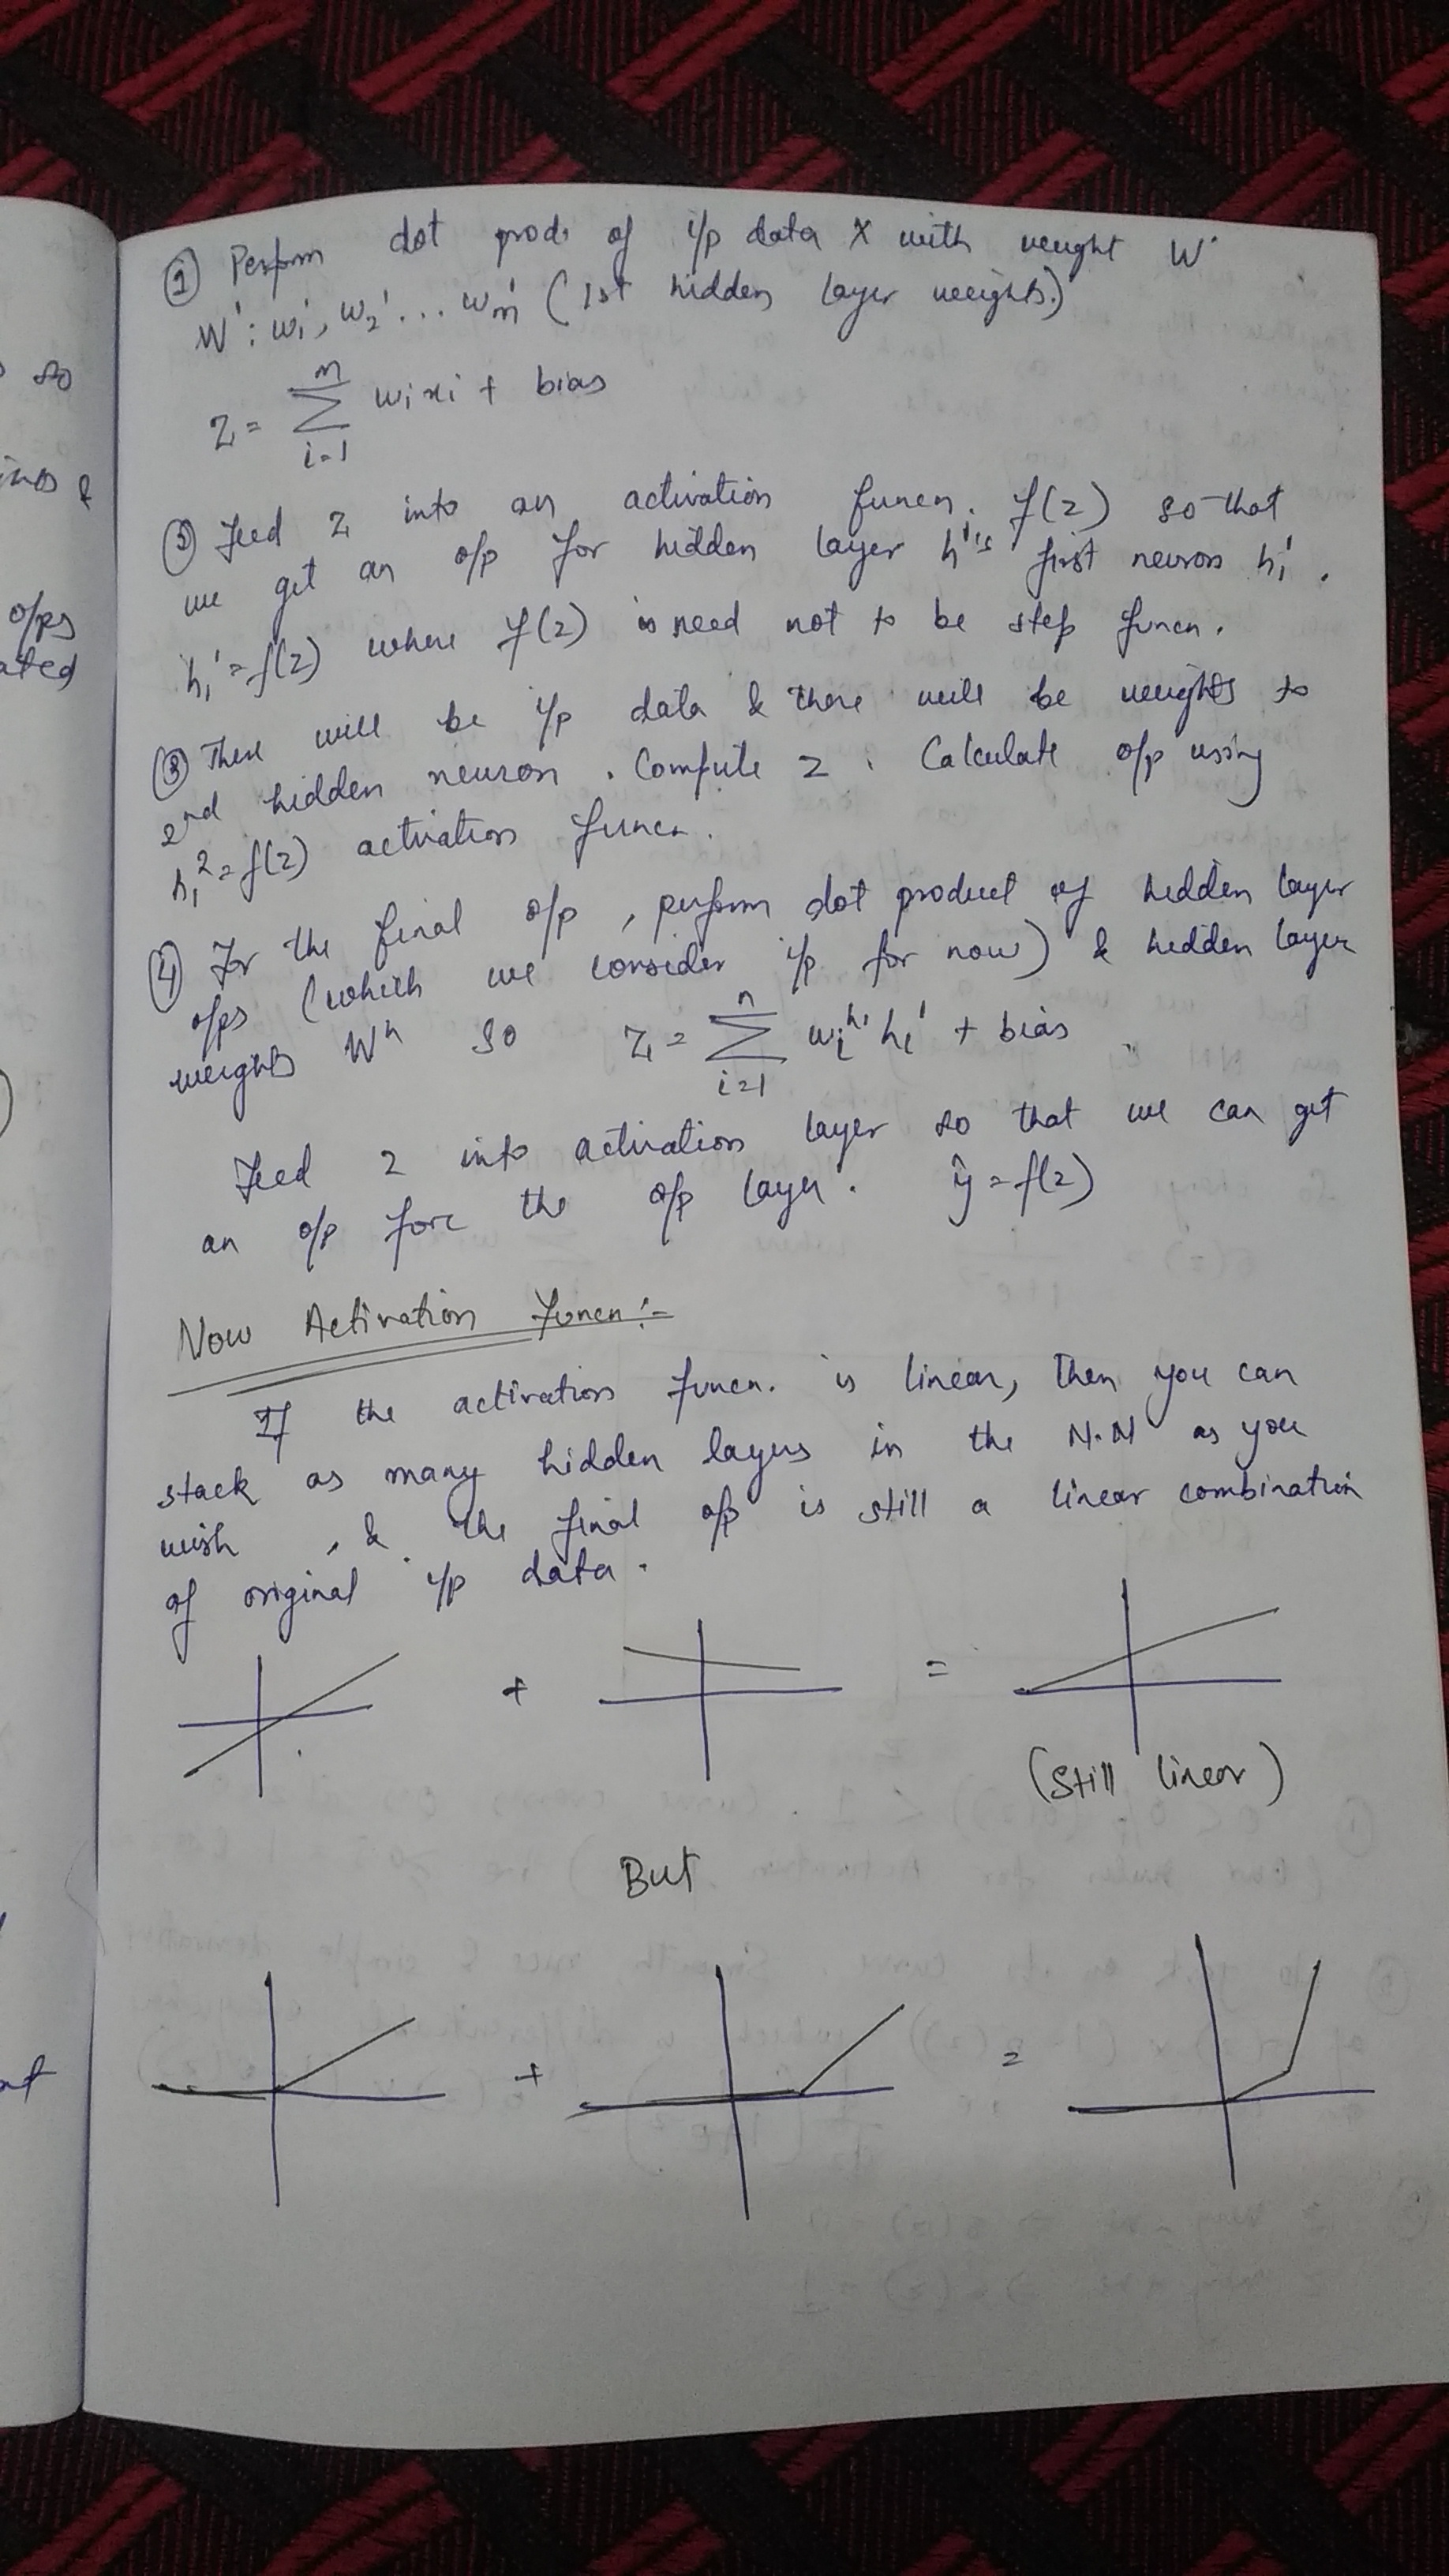 ① Perform dot prod. of i/p data X with weight W'
W' : w₁', w₂' ... wₘ' (1st hidden layer weights.)
Z = Σ_{i=1}^{n} wᵢxᵢ + bias
② Feed z into an activation funcn. f(z) so that
we get an o/p for hidden layer h¹'s first neuron h₁¹.
h₁¹ = f(z) where f(z) is need not to be step funcn.
③ There will be i/p data & there will be weights to
2nd hidden neuron. Compute z. Calculate o/p using
h₁² = f(z) activation funcn.
④ For the final o/p, perform dot product of hidden layer
o/ps (which we consider i/p for now) & hidden layer
weights Wʰ so Z = Σ_{i=1}^{n} wᵢ^{h₁} hᵢ¹ + bias
Feed z into activation layer so that we can get
an o/p forc the o/p layer. ŷ = f(z)
Now Activation Funcn:-
If the activation funcn. is linear, then you can
stack as many hidden layers in the N.N as you
wish, & the final o/p is still a linear combination
of original i/p data.
+ =
(Still linear)
But
+ =
so
o/ps
ated